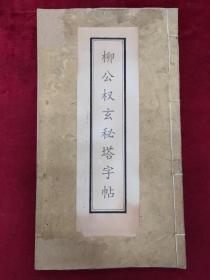 柳公权玄秘塔字帖